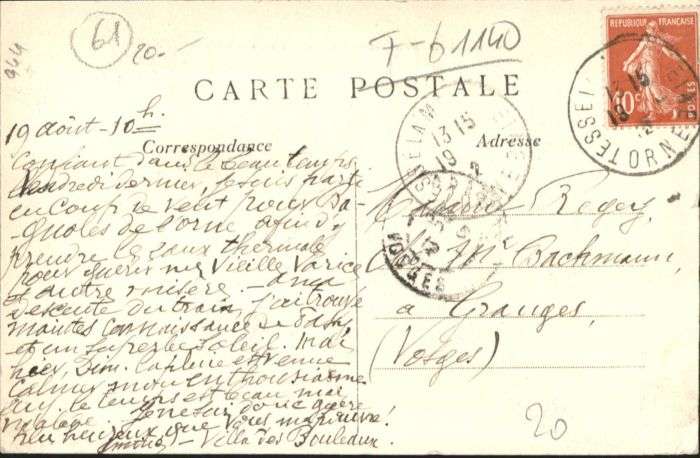 61
20.-
944
F-61140
CARTE POSTALE
REPUBLIQUE FRANÇAISE
10c
POSTES
TESSE LA M
13 15
19
ORNE
VOSGES
Correspondance
Adresse
19 août - 10 h.
Confiant dans le beau temps
Vendredi dernier, je suis parti
en coup de vent pour Ba-
gnoles de l'Orne afin d'y
prendre les eaux thermales
pour guérir ma Vieille Varice
et autre misère. - à ma
descente du train, j'ai trouvé
maintes connaissances de Paris
et un superbe soleil. Mais
hier, Dim. la pluie est venue
calmer mon enthousiasme
auj. le temps est beau mais
Je ne suis donc guère
plus heureux que Vous
- Villa des Bouleaux
Regey
Bachmann,
à Granges,
(Vosges)
20